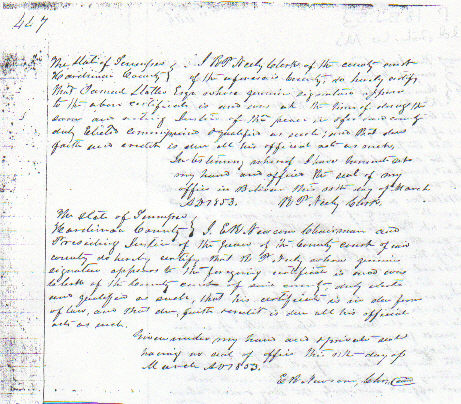 447
The State of Tennessee } I R P Neely Clerk of the county court
Hardeman County } of the aforesaid County, do hereby certify
that Samuel Esqr whose genuine signature appears
to the above certificate is and was at the time of doing the
same an acting Justice of the peace in & for said county
duly elected commissioned & qualified as such, and that due
faith and credit is due all his official acts as such,
In testimony whereof I have hereunto set
my hand and affixed the seal of my
office in Bolivar this day of March
AD 1853. R P Neely Clerk
The State of Tennessee
Hardeman County } I, E R Newsom Chairman and
Presiding Justice of the peace of the County court of said
county do hereby certify that R P Neely whose genuine
signature appears to the foregoing certificate is and was
clerk of the County court of said county, duly elected
and qualified as such, that his certificate is in due form
of law, and that due faith & credit is due all his official
acts as such.
Given under my hand and private seal
having no seal of office this day of
March AD 1853.
E R Newsom, Chr